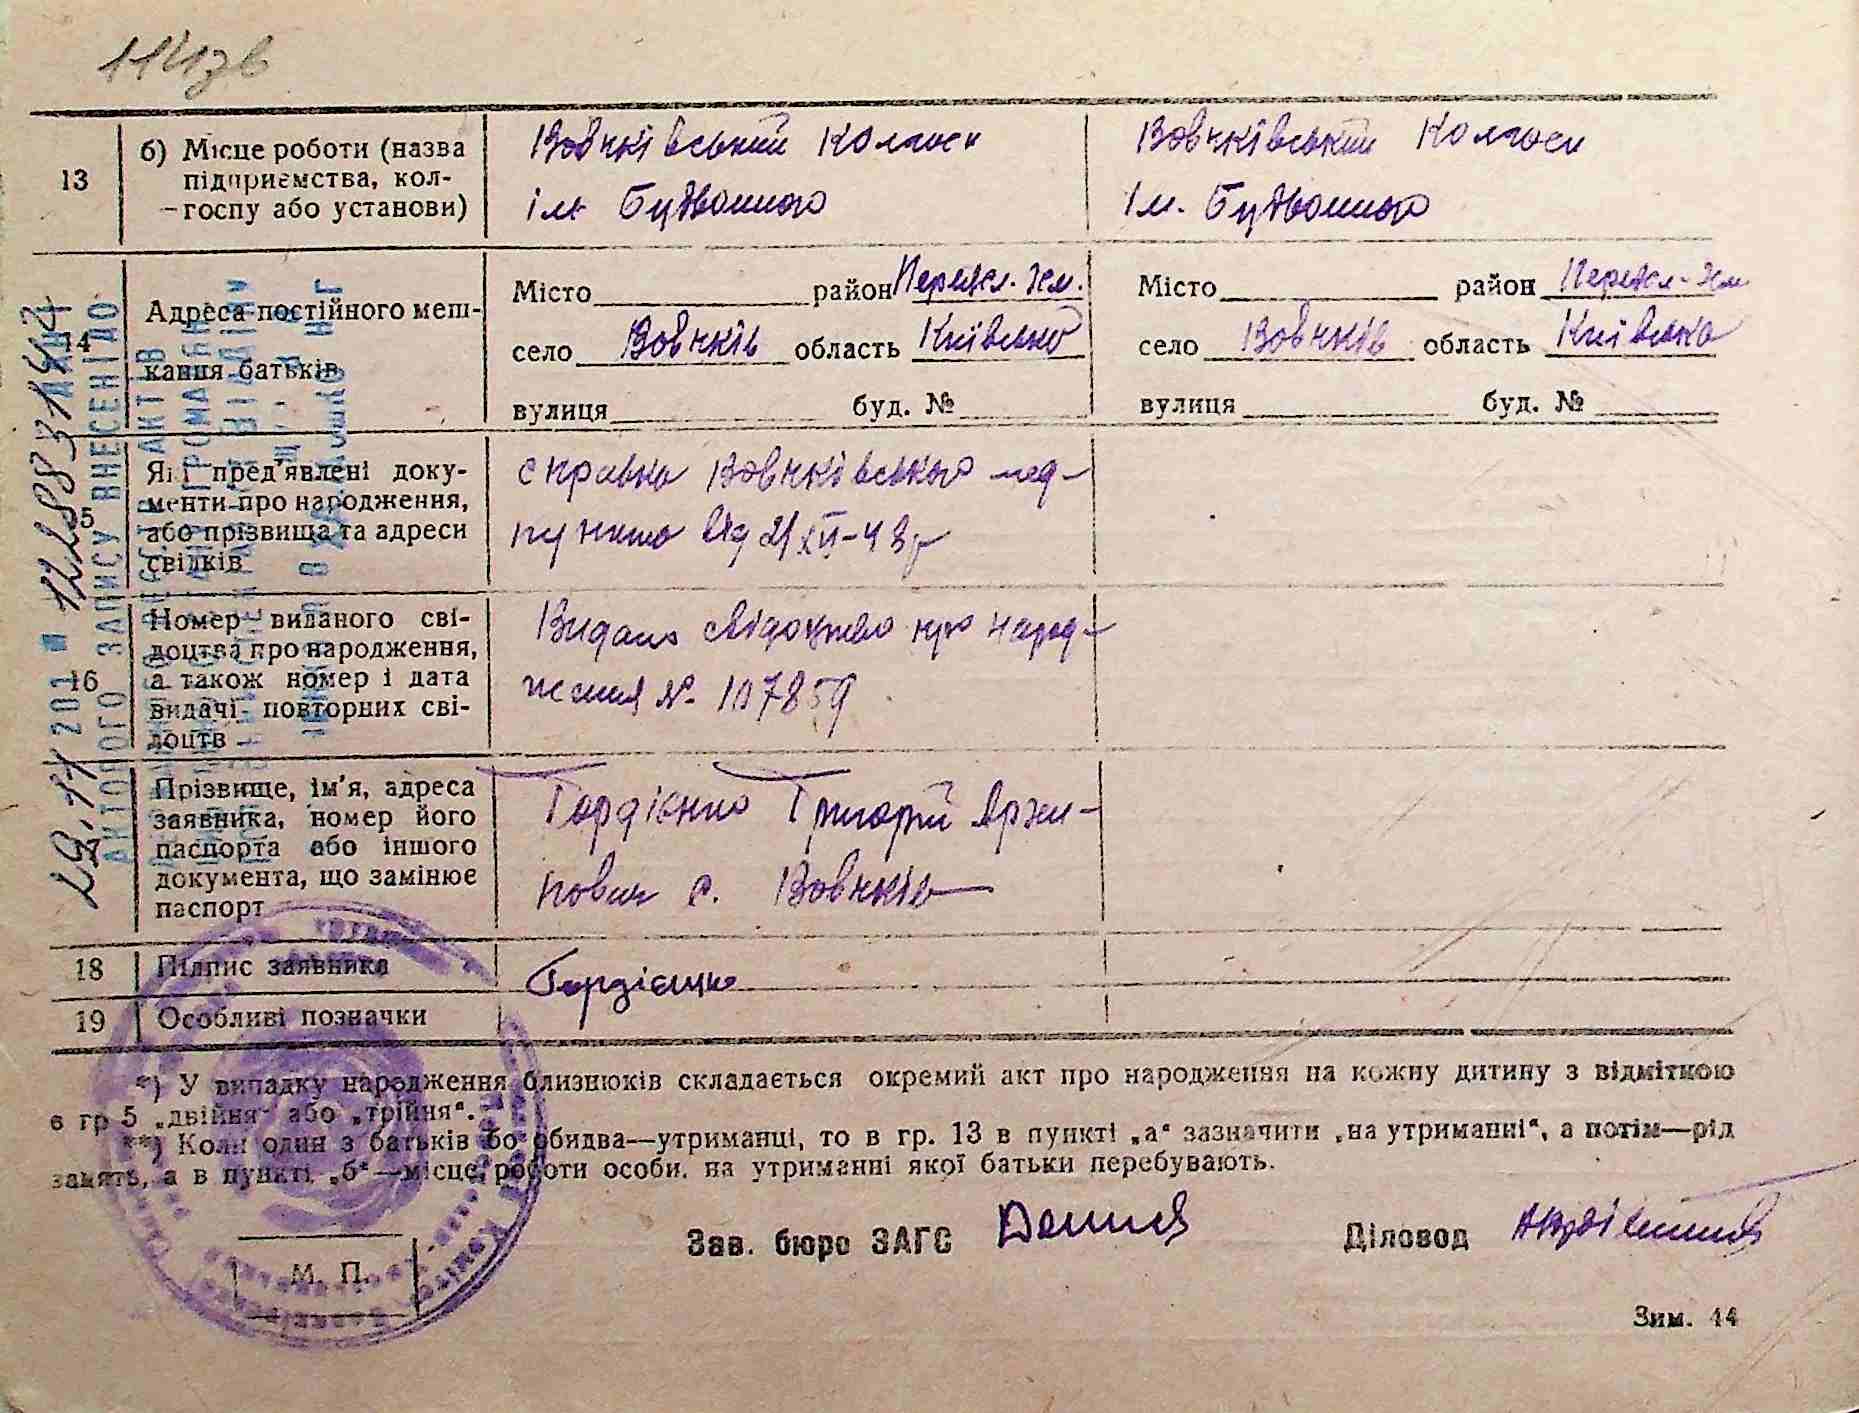 13
б) Місце роботи (назва
підприємства, кол-
госпу або установи)
Вовчківський колгосп
ім Будьонного
Вовчківський колгосп
ім. Будьонного
14
Адреса постійного меш-
кання батьків
Місто район Переясл.-Хм.
село Вовчків область Київської
вулиця буд. №
Місто район Переясл-Хм
село Вовчків область Київська
вулиця буд. №
15
Які пред'явлені доку-
менти про народження,
або прізвища та адреси
свідків
справка Вовчківського мед-
пункта від 21/XII-48р
16
Номер виданого сві-
доцтва про народження,
а також номер і дата
видачі повторних сві-
доцтв
Видано свідоцтво про народ-
ження № 107859
Прізвище, ім'я, адреса
заявника, номер його
паспорта або іншого
документа, що замінює
паспорт
Гордієнко Григорій Архи-
пович с. Вовчків
18
Підпис заявника
Гордієнко
19
Особливі позначки
*) У випадку народження близнюків складається окремий акт про народження на кожну дитину з відміткою
в гр 5 „двійня“ або „трійня“.
**) Коли один з батьків бо обидва—утриманці, то в гр. 13 в пункті „а“ зазначити „на утриманні“, а потім—рід
занять, а в пункті „б“—місце роботи особи, на утриманні якої батьки перебувають.
Зав. бюро ЗАГС
Діловод
М. П.
Зим. 44
АКТОВОГО ЗАПИСУ ВНЕСЕНІ ДО